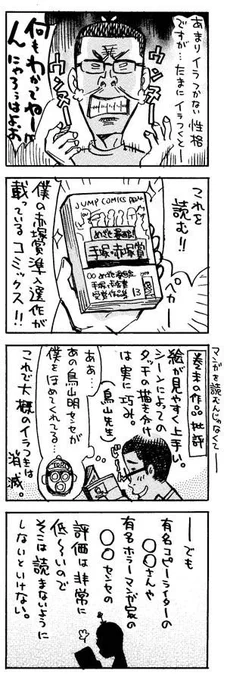 あまりイラつかない性格
ですが…たまにイラつくと―
ウンヌ〜
ウンヌ〜
何もわかってねーに
んにゃろはよお
これを
読む!!
JUMP COMICS
手塚・赤塚賞
手塚・赤塚賞
受賞作品集
13
ピカー
僕の赤塚賞準入選作が
載っているコミックス!!
マンガを読むんじゃなくて―
巻末の作品批評
絵が見やすく上手い。
シーンによっての
タッチの描き分け
は実に巧み。
(鳥山先生)
ああ…
あの鳥山明センセが
僕をほめてくれてる…
これで大概のイラつきは
消滅。
―でも
有名コピーライターの
〇〇さんや
有名ホラーマンガ家の
〇〇センセの
評価は非常に
低〜いので
そこは読まないように
しないといけない。